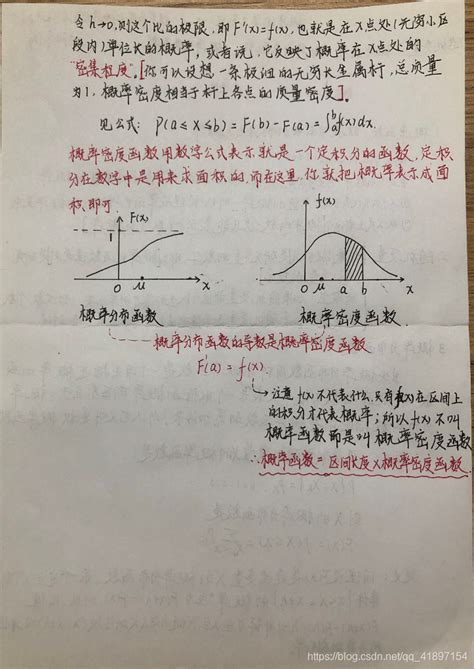 令h→0,则这个比的极限,即F'(x)=f(x),也就是在X点处(无穷小区
段内)单位长的概率,或者说,它反映了概率在X点处的
"密集程度".[你可以设想一条极细的无穷长金属杆,总质量
为1,概率密度相当于杆上各点的质量密度].
见公式: P(a≤X≤b)=F(b)-F(a)=∫ₐᵇf(x)dx.
概率密度函数用数学公式表示就是一个定积分的函数,定积
分在数学中是用来求面积的,而在这里,你就把概率表示成面
积即可.
F(x)
1
0 μ x
f(x)
0 μ a b x
概率分布函数
概率密度函数
概率分布函数的导数是概率密度函数
F(a)=f(x).
注意 f(x)不代表什么,只有f(x)在区间上
的积分才代表概率;所以f(x)不叫
概率函数而是叫概率密度函数
∴概率函数=区间长度×概率密度函数.
https://blog.csdn.net/qq_41897154